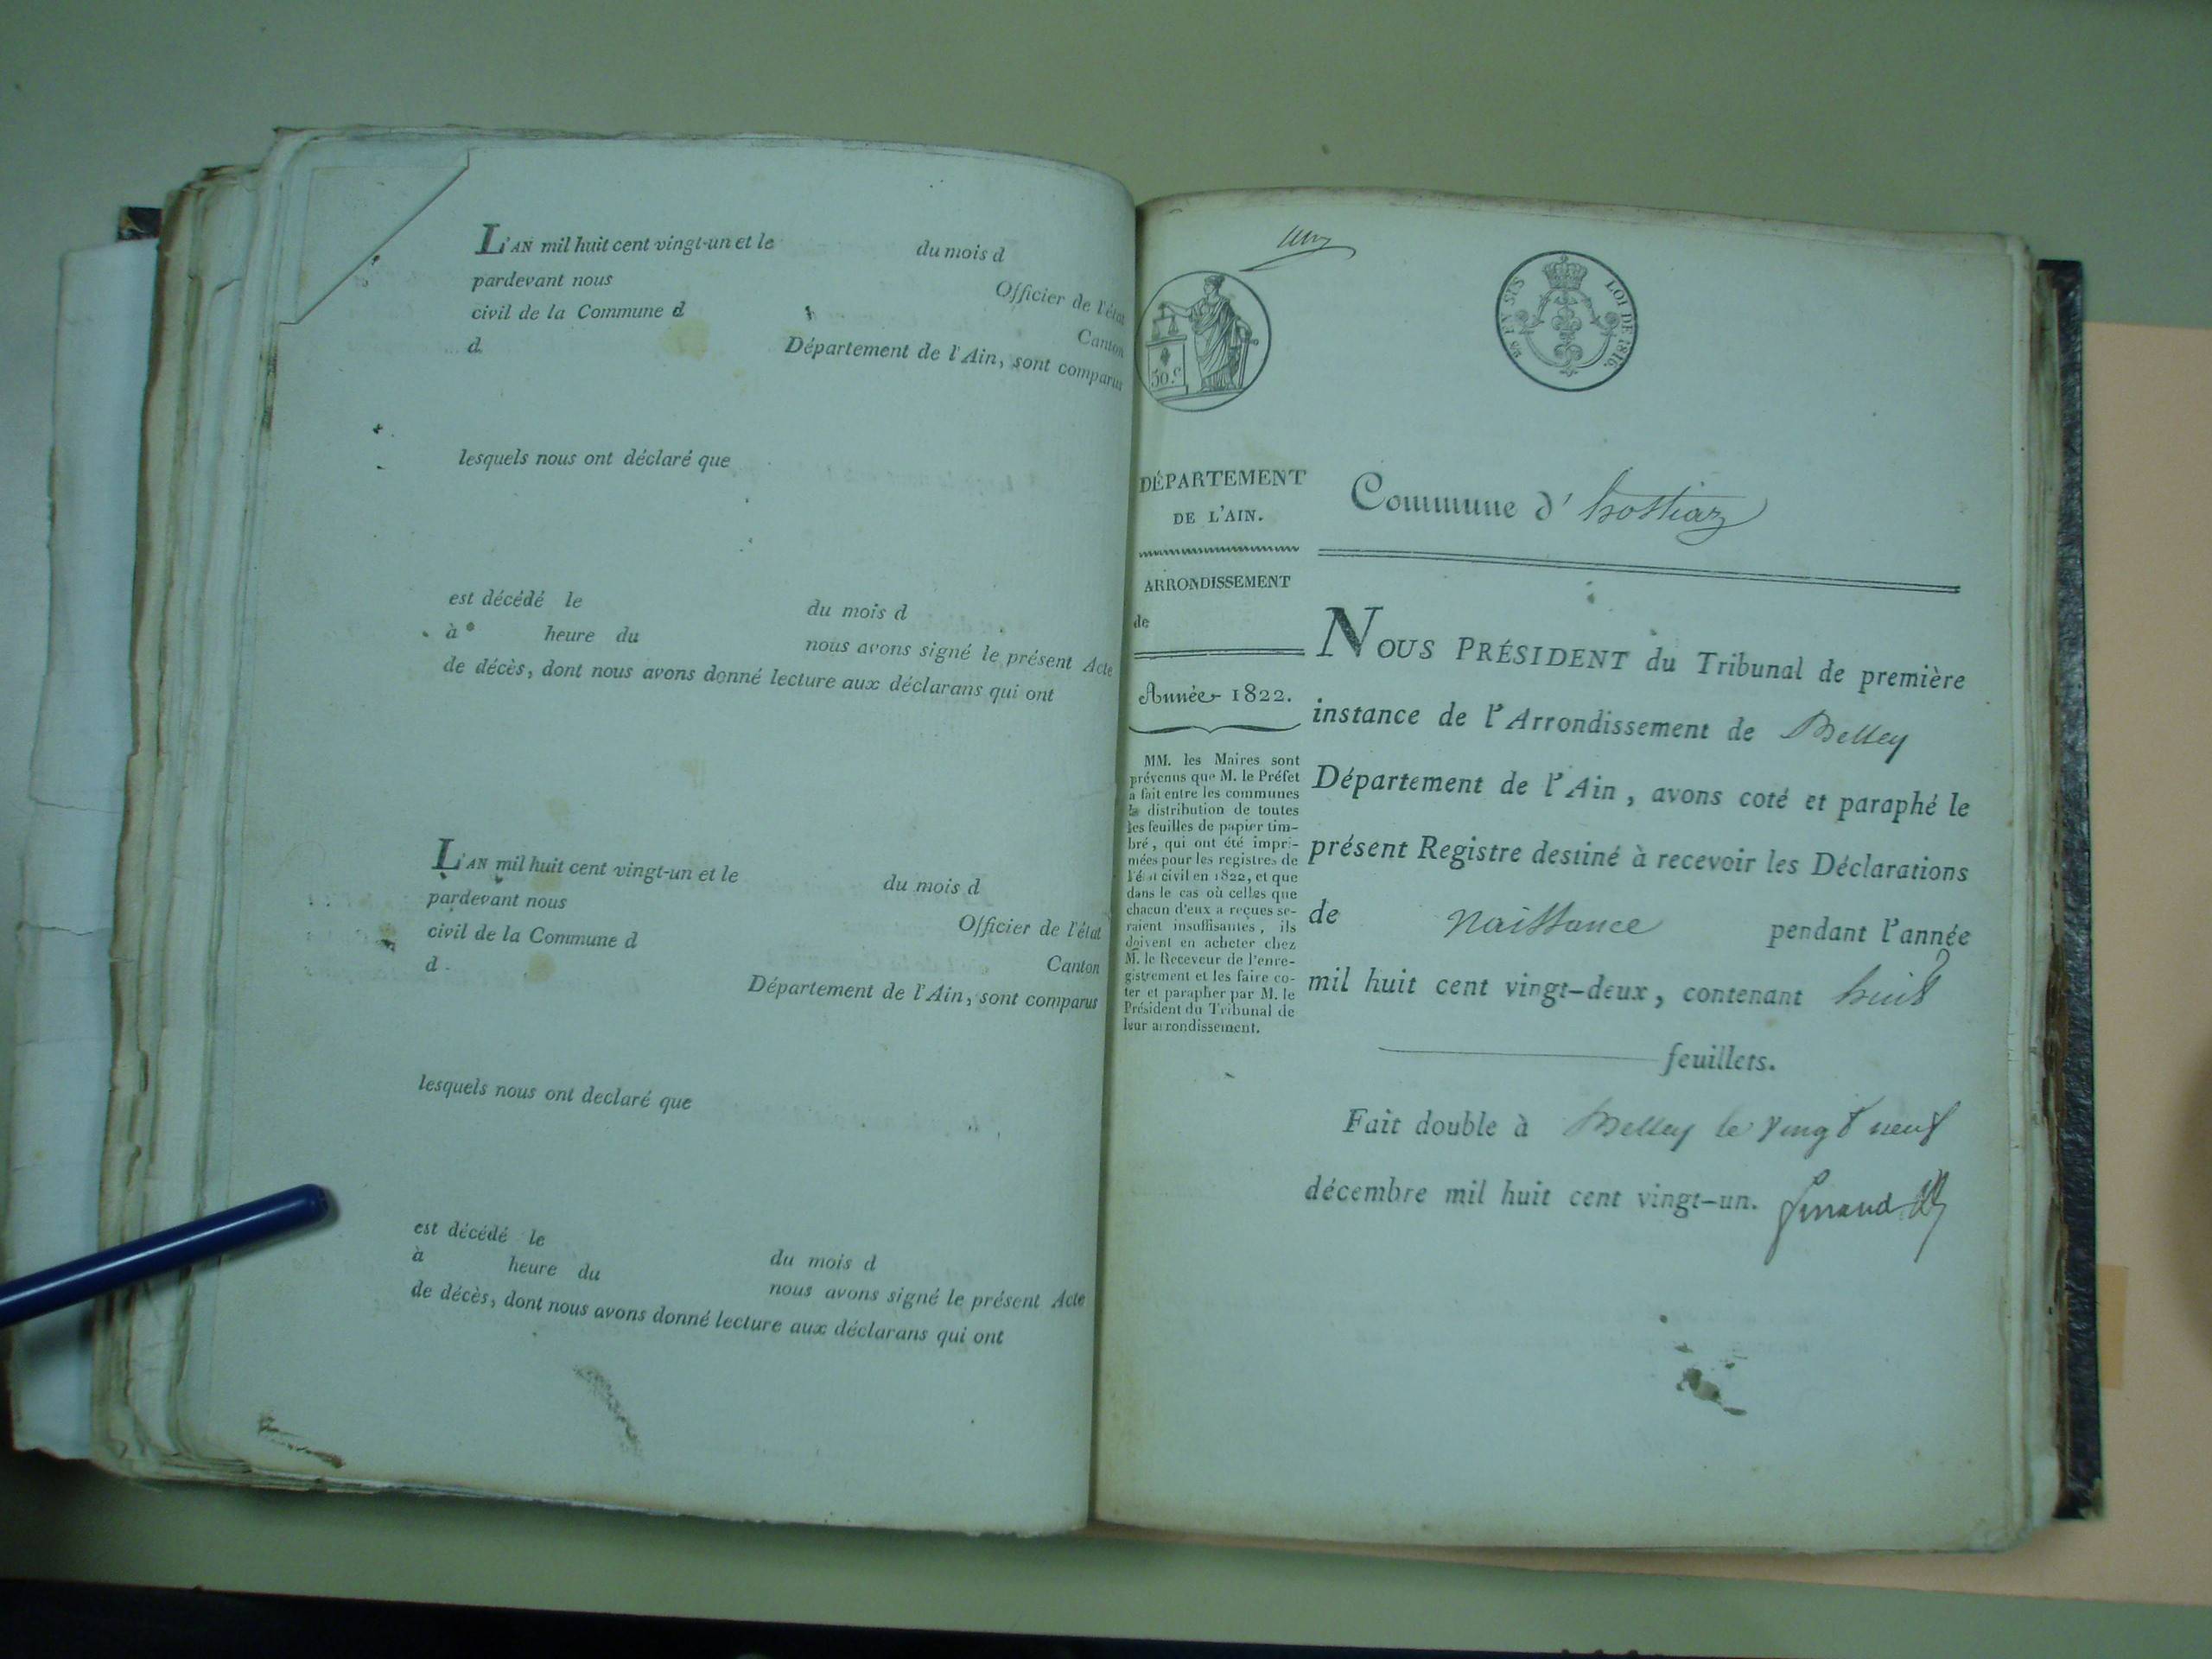 L'AN mil huit cent vingt-un et le du mois d
pardevant nous Officier de l'état
civil de la Commune d Canton
d Département de l'Ain, sont comparus
lesquels nous ont déclaré que
est décédé le du mois d
à heure du nous avons signé le présent Acte
de décès, dont nous avons donné lecture aux déclarans qui ont
L'AN mil huit cent vingt-un et le du mois d
pardevant nous Officier de l'état
civil de la Commune d Canton
d Département de l'Ain, sont comparus
lesquels nous ont declaré que
est décédé le du mois d
à heure du nous avons signé le présent Acte
de décès, dont nous avons donné lecture aux déclarans qui ont
50.c
LOI DE 1816.
DÉPARTEMENT
DE L'AIN.
ARRONDISSEMENT
de
Année 1822.
MM. les Maires sont
prévenus que M. le Préfet
a fait entre les communes
la distribution de toutes
les feuilles de papier tim-
bré, qui ont été impri-
mées pour les registres de
l'état civil en 1822, et que
dans le cas où celles que
chacun d'eux a reçues se-
raient insuffisantes, ils
doivent en acheter chez
M. le Receveur de l'enre-
gistrement et les faire co-
ter et parapher par M. le
Président du Tribunal de
leur arrondissement.
Commune d' hostiaz
NOUS PRÉSIDENT du Tribunal de première
instance de l'Arrondissement de Belley
Département de l'Ain, avons coté et paraphé le
présent Registre destiné à recevoir les Déclarations
de naissance pendant l'année
mil huit cent vingt-deux, contenant huit
feuillets.
Fait double à Belley le vingt neuf
décembre mil huit cent vingt-un.